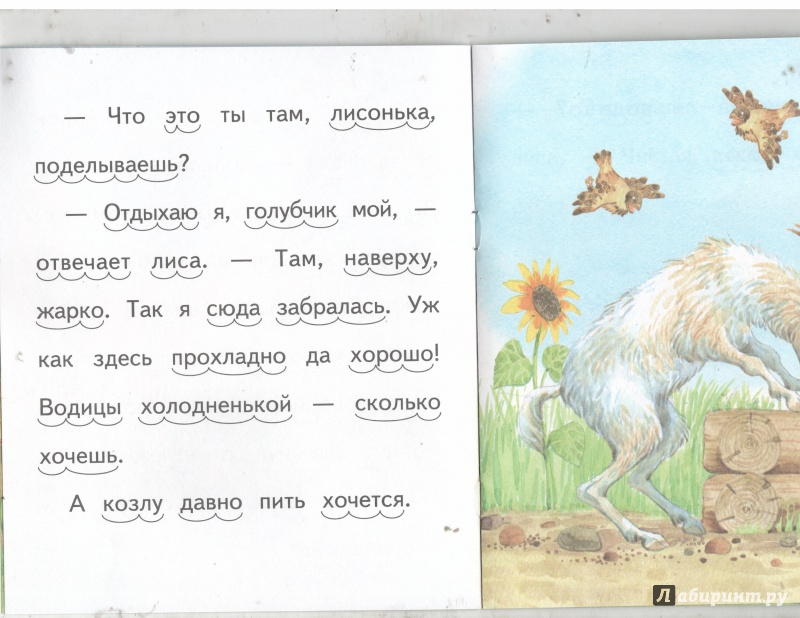 — Что это ты там, лисонька,
поделываешь?
— Отдыхаю я, голубчик мой, —
отвечает лиса. — Там, наверху,
жарко. Так я сюда забралась. Уж
как здесь прохладно да хорошо!
Водицы холодненькой — сколько
хочешь.
А козлу давно пить хочется.
Лабиринт.ру